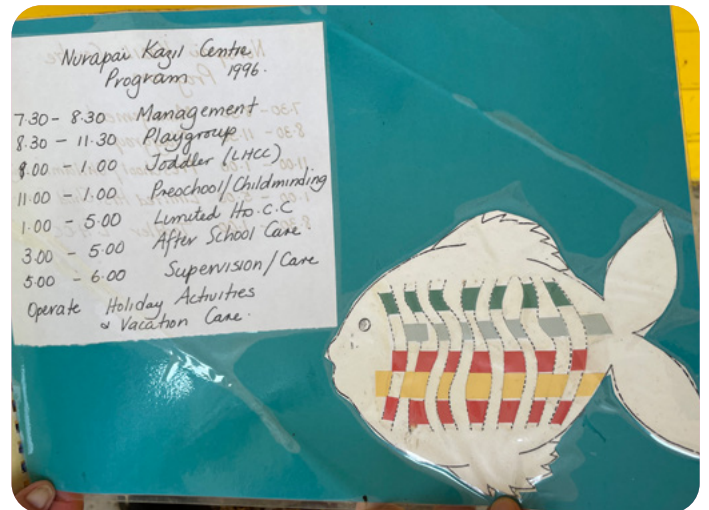 Nurapai Kazil Centre
Program 1996.
7.30 - 8.30 Management
8.30 - 11.30 Playgroup
8.00 - 1.00 Toddler (LHCC)
11.00 - 1.00 Preochool/Childminding
1.00 - 5.00 Limited Ho.C.C
3.00 - 5.00 After School Care
5.00 - 6.00 Supervision/Care
Operate Holiday Activities
& Vacation Care.